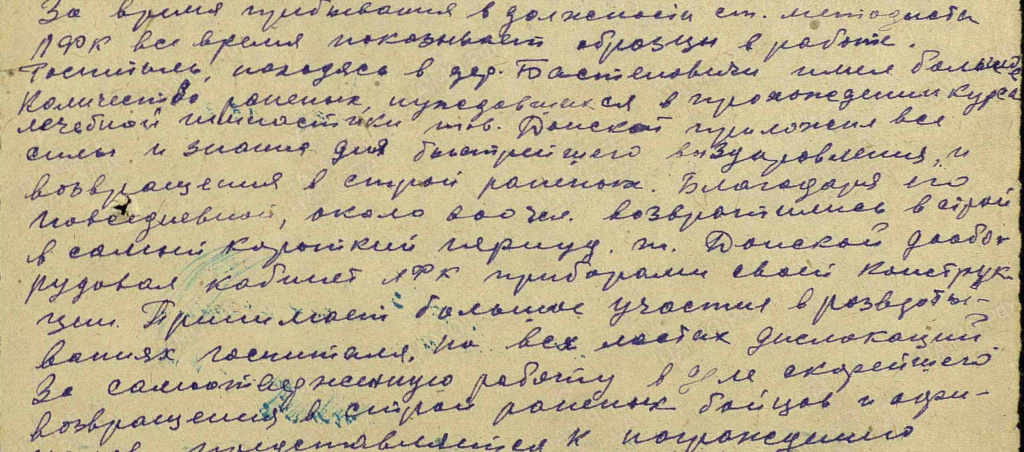 За время пребывания в должности ст. методиста
ЛФК все время показывает образцы в работе.
Госпиталь, находясь в дер. Бастеновичи имел большое
количество раненых, нуждавшихся в прохождении курса
лечебной гимнастики тов. Донской приложил все
силы и знания для быстрейшего выздоровления, и
возвращения в строй раненых. Благодаря его
повседневной, около чел. возвратились в строй
в самый короткий период. т. Донской дообо-
рудовал кабинет ЛФК приборами своей конструк-
ции. Принимает большое участие в
госпиталя, на всех местах дислокаций
За самоотверженную работу в деле скорейшего
возвращения в строй раненых бойцов и офи-
представляется к награждению